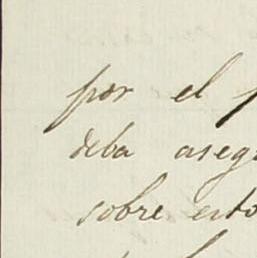 por el
deba aseg
sobre esto